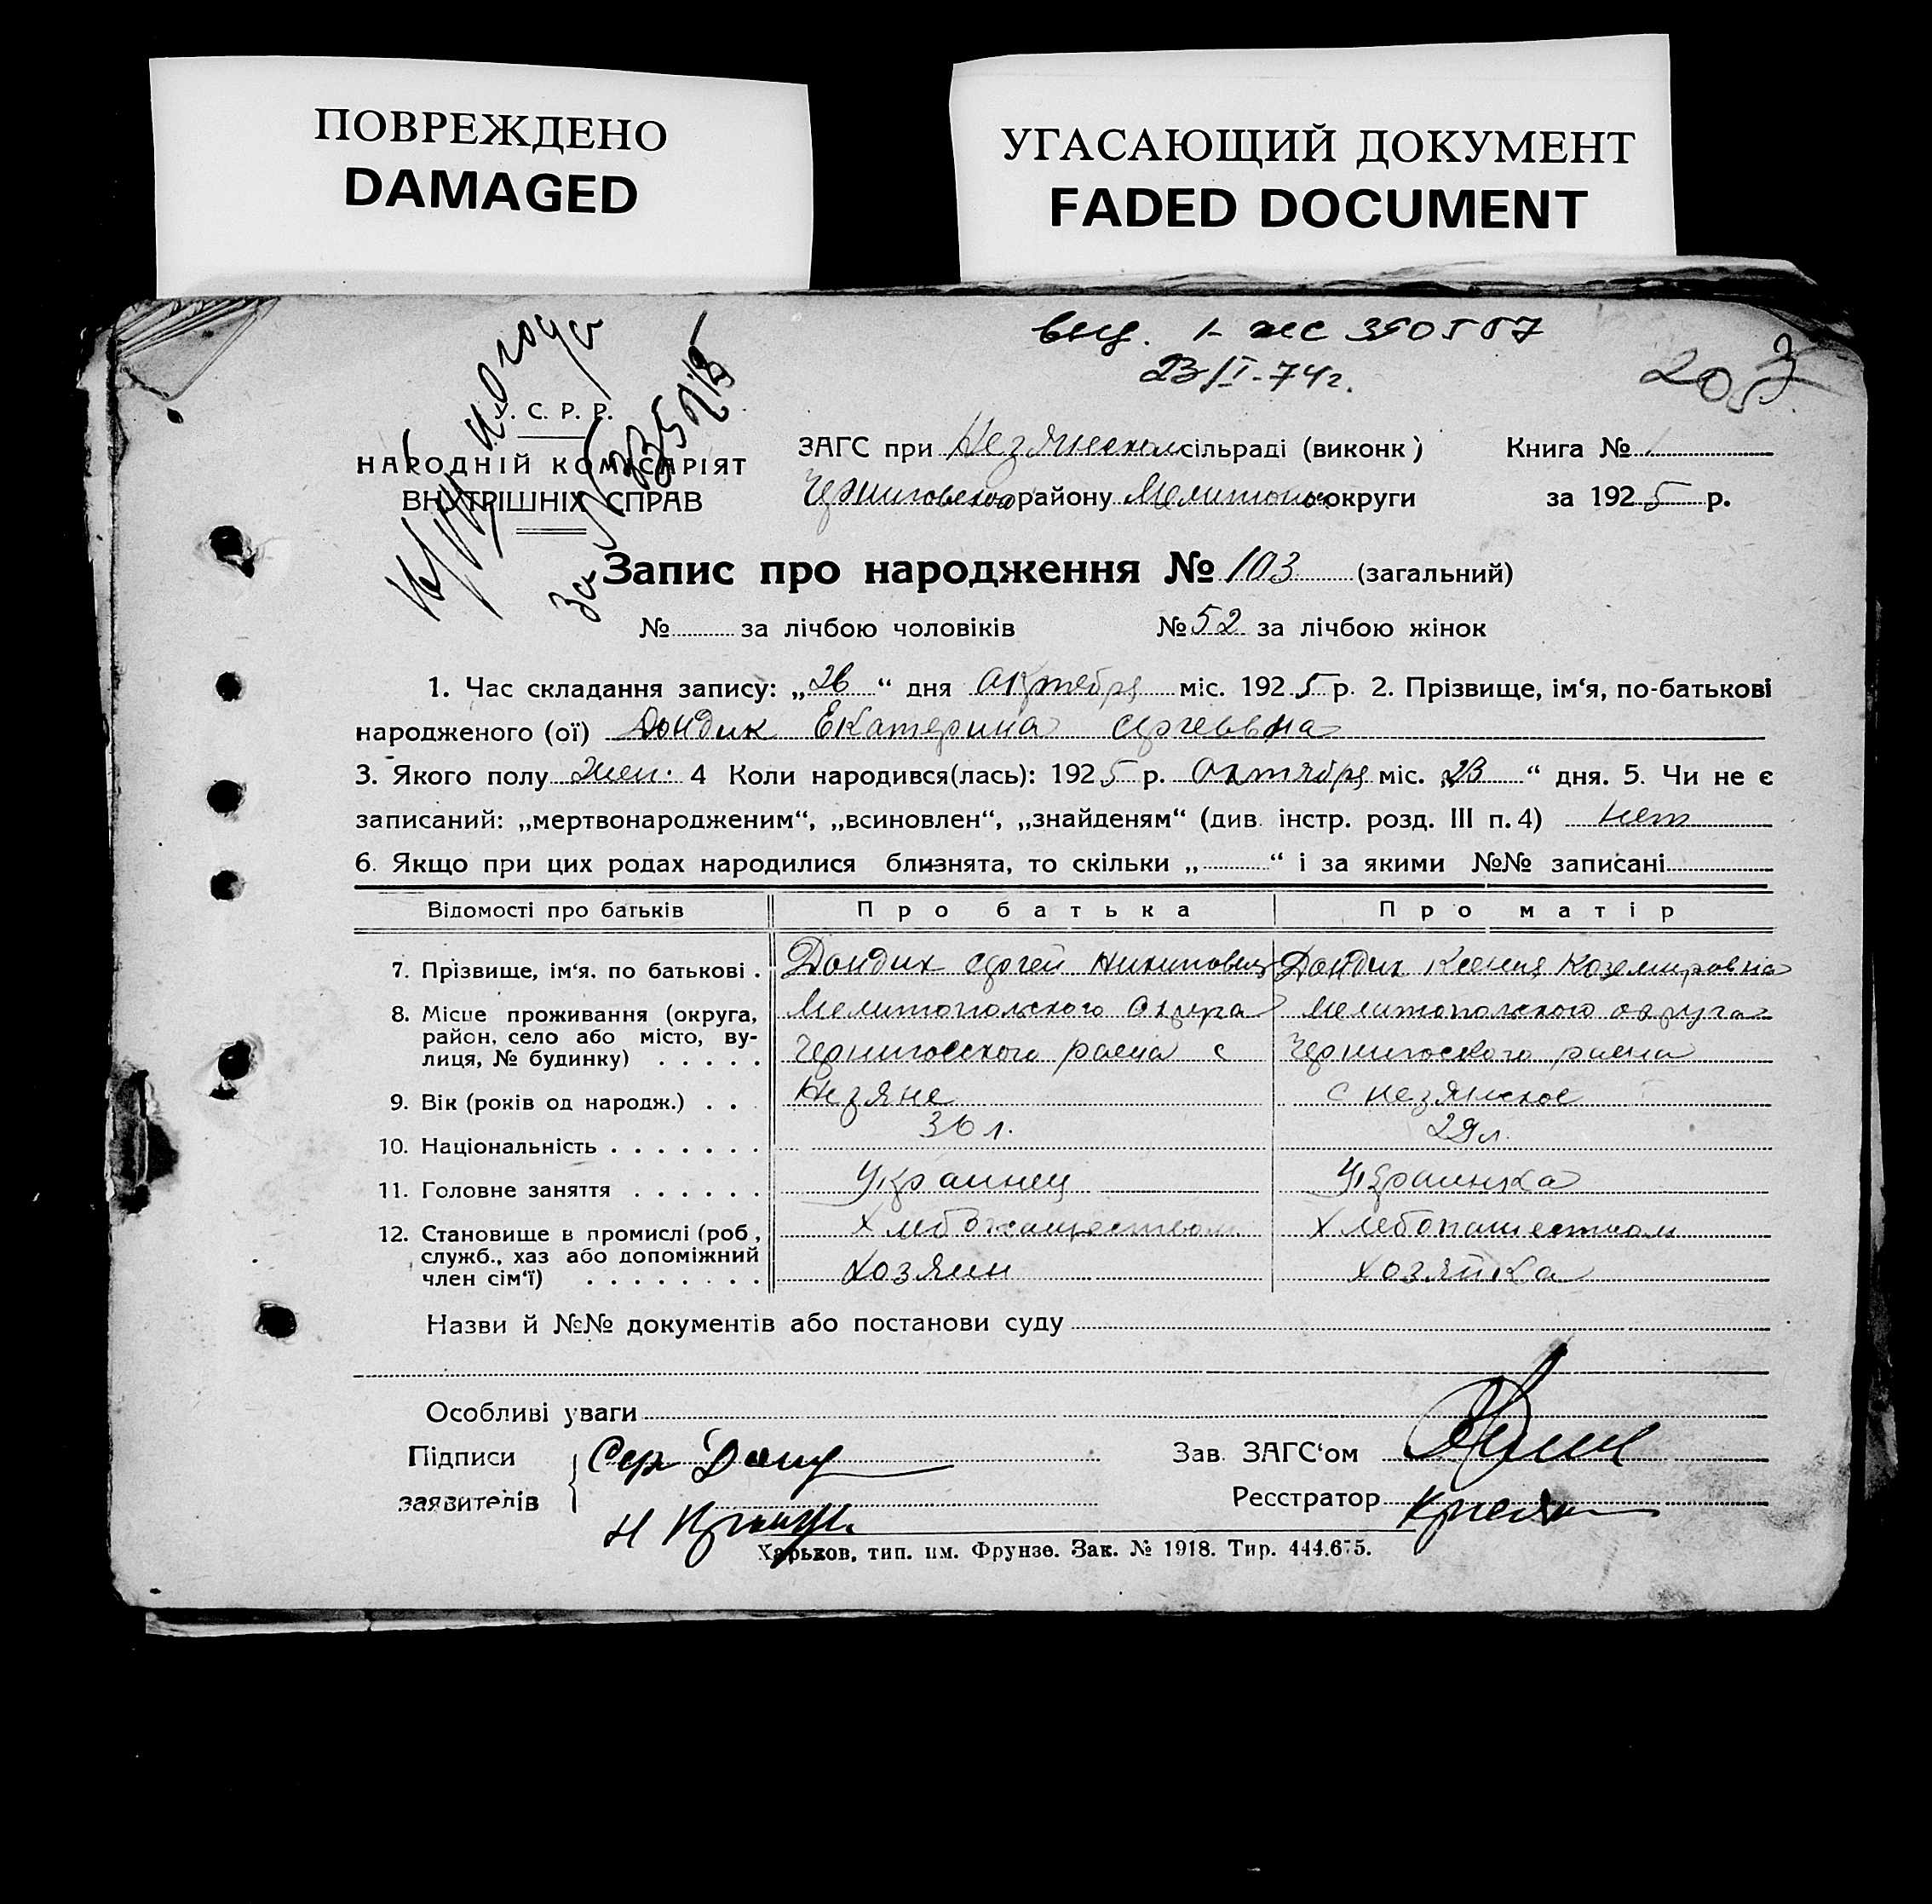 ПОВРЕЖДЕНО
DAMAGED
УГАСАЮЩИЙ ДОКУМЕНТ
FADED DOCUMENT
23/I-74г.
203
С. Р. Р.
НАРОДНІЙ КОМІСАРІЯТ
ВНУТРІШНІХ СПРАВ
ЗАГС при сільраді (виконк) Книга № 1
району округи за 1925 р.
Запис про народження № 103 (загальний)
№ за лічбою чоловіків № 52 за лічбою жінок
1. Час складання запису: „26“ дня октября міс. 1925 р. 2. Прізвище, ім‘я, по-батькові
народженого (ої) Дондик Екатерина Сергеевна
3. Якого полу Жен. 4 Коли народився(лась): 1925 р. Октября міс. „23“ дня. 5. Чи не є
записаний: „мертвонародженим“, „всиновлен“, „знайденям“ (див. інстр. розд. III п. 4) нет
6. Якщо при цих родах народилися близнята, то скільки „ “ і за якими №№ записані
Відомості про батьків Про батька Про матір
7. Прізвище, ім‘я. по батькові . Дондик Сергей Дондик Ксения
8. Місце проживання (округа, район, село або місто, вулиця, № будинку) Мелитопольского Округа Мелитопольского округа
Черниговского раена с Черниговского раена
9. Вік (років од народж.) Незяне с
36 л. 29 л.
10. Національність
11. Головне заняття Украинец Украинка
12. Становище в промислі (роб., служб., хаз або допоміжний член сім‘ї) Хлебопашеством Хлебопашеством
Хозяин хозяйка
Назви й №№ документів або постанови суду
Особливі уваги
Підписи заявителів
Зав. ЗАГС‘ом
Реєстратор
Харьков, тип. им. Фрунзе. Зак. № 1918. Тир. 444.675.